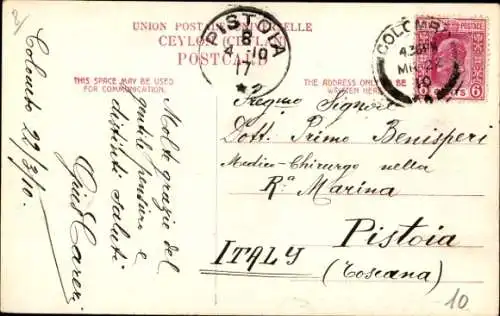 UNION POSTALE UNIVERSELLE
CEYLON (CEYLAN)
POSTCARD
THIS SPACE MAY BE USED
FOR COMMUNICATION.
THE ADDRESS ONLY
BE
WRITTEN HERE
PISTOIA
8
4-10
17
COLOMB
10
6 6
Colombo 22/3/10.
Molte grazie del
gentile pensiero e
distinti saluti
Egregio Signor
Dott. Primo Benisperi
Medico-Chirurgo nella
Ra Marina
Pistoia
ITALY
(Toscana)
10